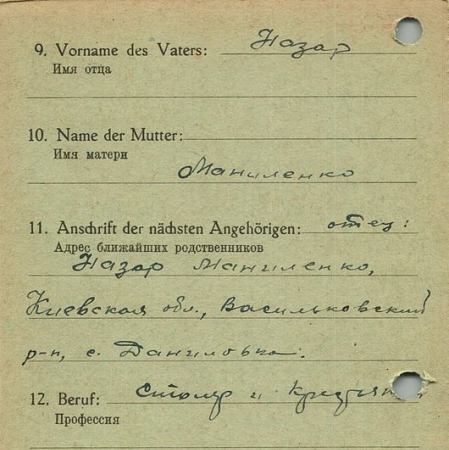 9. Vorname des Vaters: Назар
Имя отца
10. Name der Mutter:
Имя матери
Маниленко
11. Anschrift der nächsten Angehörigen: отец:
Адрес ближайших родственников
Назар Маниленко,
Киевская обл., Васильковский
р-н, с. Даниловка.
12. Beruf: столяр и
Профессия